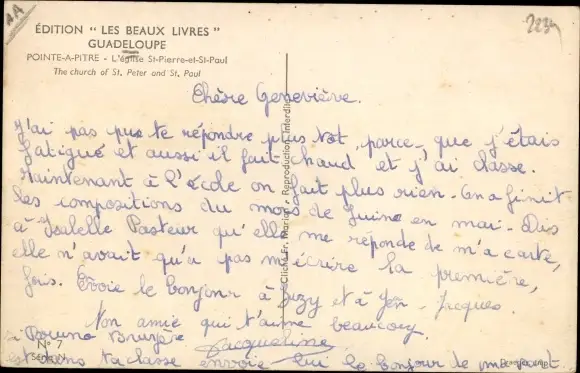 AA
2234
ÉDITION " LES BEAUX LIVRES "
GUADELOUPE
POINTE-A-PITRE - L'église St-Pierre-et-St-Paul
The church of St. Peter and St. Paul
Chère Geneviève.
J'ai pas pus te répondre plus tot, parce-que j'étais
fatigué et aussi il fait chaud et j'ai classe.
Maintenant à l'école on fait plus rien. On a finit
les compositions du mois de Juine en mai. Dis
à Isabelle Pasteur qu'elle me réponde de m'a carte,
elle n'avait qu'a pas m'écrire la première,
fois. Envoie le bonjour à Suzy et à Jen-Jacques.
Ton amie qui t'aime beaucoup
Jacqueline
Bruno Bruyère
est dans ta classe envoie lui le bonjour de ma part
N° 7
Série N
Cliché Fr. Marion - Reproduction Interdite